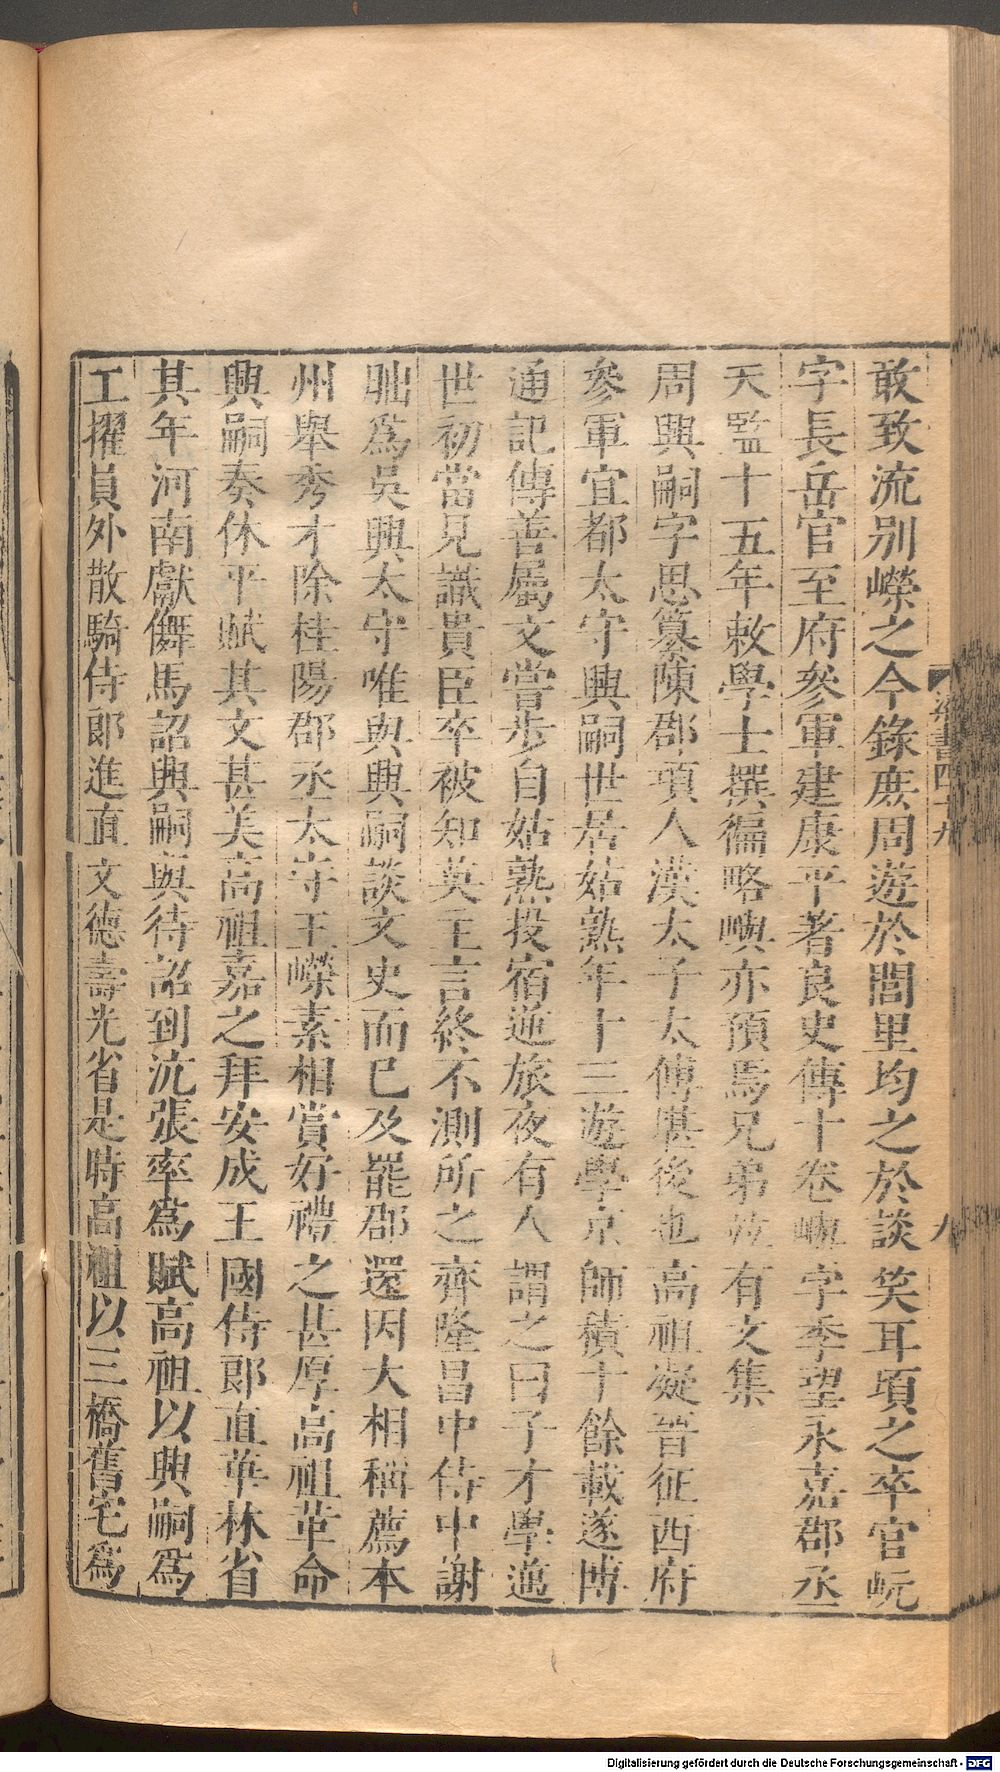 敢致流别嶸之今錄庶周遊於閭里均之於談笑耳頃之卒官岏
字長岳官至府參軍建康平著良史傳十卷嶼字季望永嘉郡丞
天監十五年敕學士撰徧略嶼亦預焉兄弟竝有文集
周興嗣字思纂陳郡項人漢太子太傅堪後也高祖凝晉征西府
參軍宜都太守興嗣世居姑熟年十三遊學京師積十餘載遂博
通記傳善屬文嘗步自姑熟投宿逆旅夜有人謂之曰子才學邁
世初當見識貴臣卒被知英主言終不測所之齊隆昌中侍中謝
朏爲吳興太守唯與興嗣談文史而已及罷郡還因大相稱薦本
州舉秀才除桂陽郡丞太守王嶸素相賞好禮之甚厚高祖革命
興嗣奏休平賦其文甚美高祖嘉之拜安成王國侍郎直華林省
其年河南獻儛馬詔興嗣與待詔到沆張率爲賦高祖以興嗣爲
工擢員外散騎侍郎進直文德壽光省是時高祖以三橋舊宅爲
梁書四十九
九
Digitalisierung gefördert durch die Deutsche Forschungsgemeinschaft - DFG